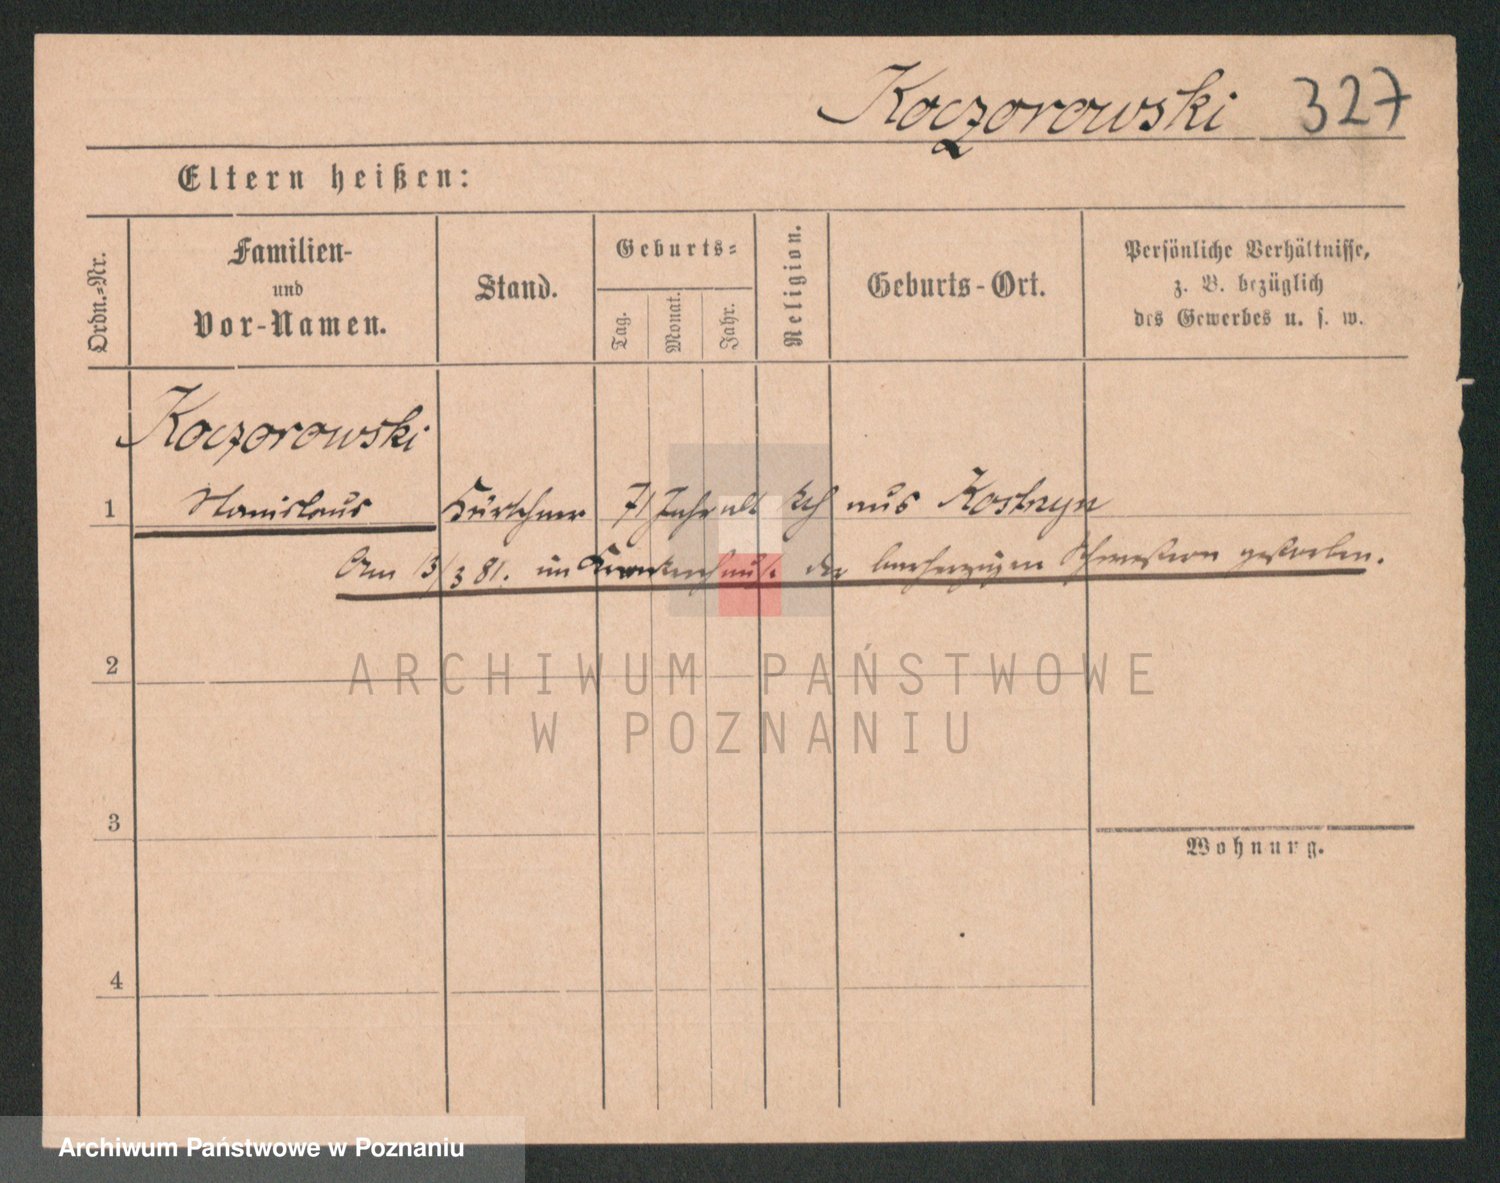 Koczorowski 327
Eltern heißen:
Ordn.-Nr.
Familien-
und
Vor-Namen.
Stand.
Geburts-
Tag.
Monat.
Jahr.
Religion.
Geburts-Ort.
Persönliche Verhältnisse,
z. B. bezüglich
des Gewerbes u. s. w.
Koczorowski
1 Stanislaus Kürschner 71 Jahr alt kth aus Kostrzyn
Am 13/3 81. im Krankenhause der barherzigen Schwestern gestorben.
2
ARCHIWUM PAŃSTWOWE
W POZNANIU
3
Wohnung.
4
Archiwum Państwowe w Poznaniu